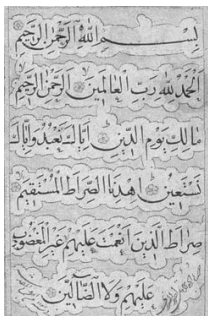 بِسْمِ اللهِ الرَّحْمٰنِ الرَّحِيمِ
اَلْحَمْدُ لِلّٰهِ رَبِّ الْعَالَمِينَ الرَّحْمٰنِ الرَّحِيمِ
مَالِكِ يَوْمِ الدِّينِ اِيَّاكَ نَعْبُدُ وَاِيَّاكَ
نَسْتَعِينُ اِهْدِنَا الصِّرَاطَ الْمُسْتَقِيمَ
صِرَاطَ الَّذِينَ اَنْعَمْتَ عَلَيْهِمْ غَيْرِ الْمَغْضُوبِ
عَلَيْهِمْ وَلَا الضَّالِّينَ